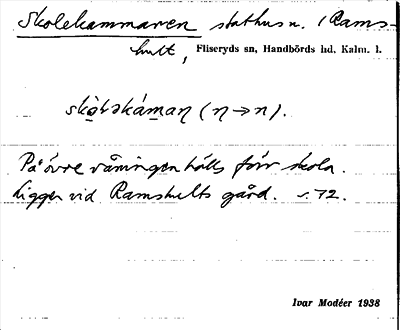 Skolekammaren stathus n. i Rams-
hult, Fliseryds sn, Handbörds hd, Kalm. l.
(n → n).
På övre våningen hölls förr skola.
Ligger vid Ramshults gård. s. 72.
Ivar Modéer 1938